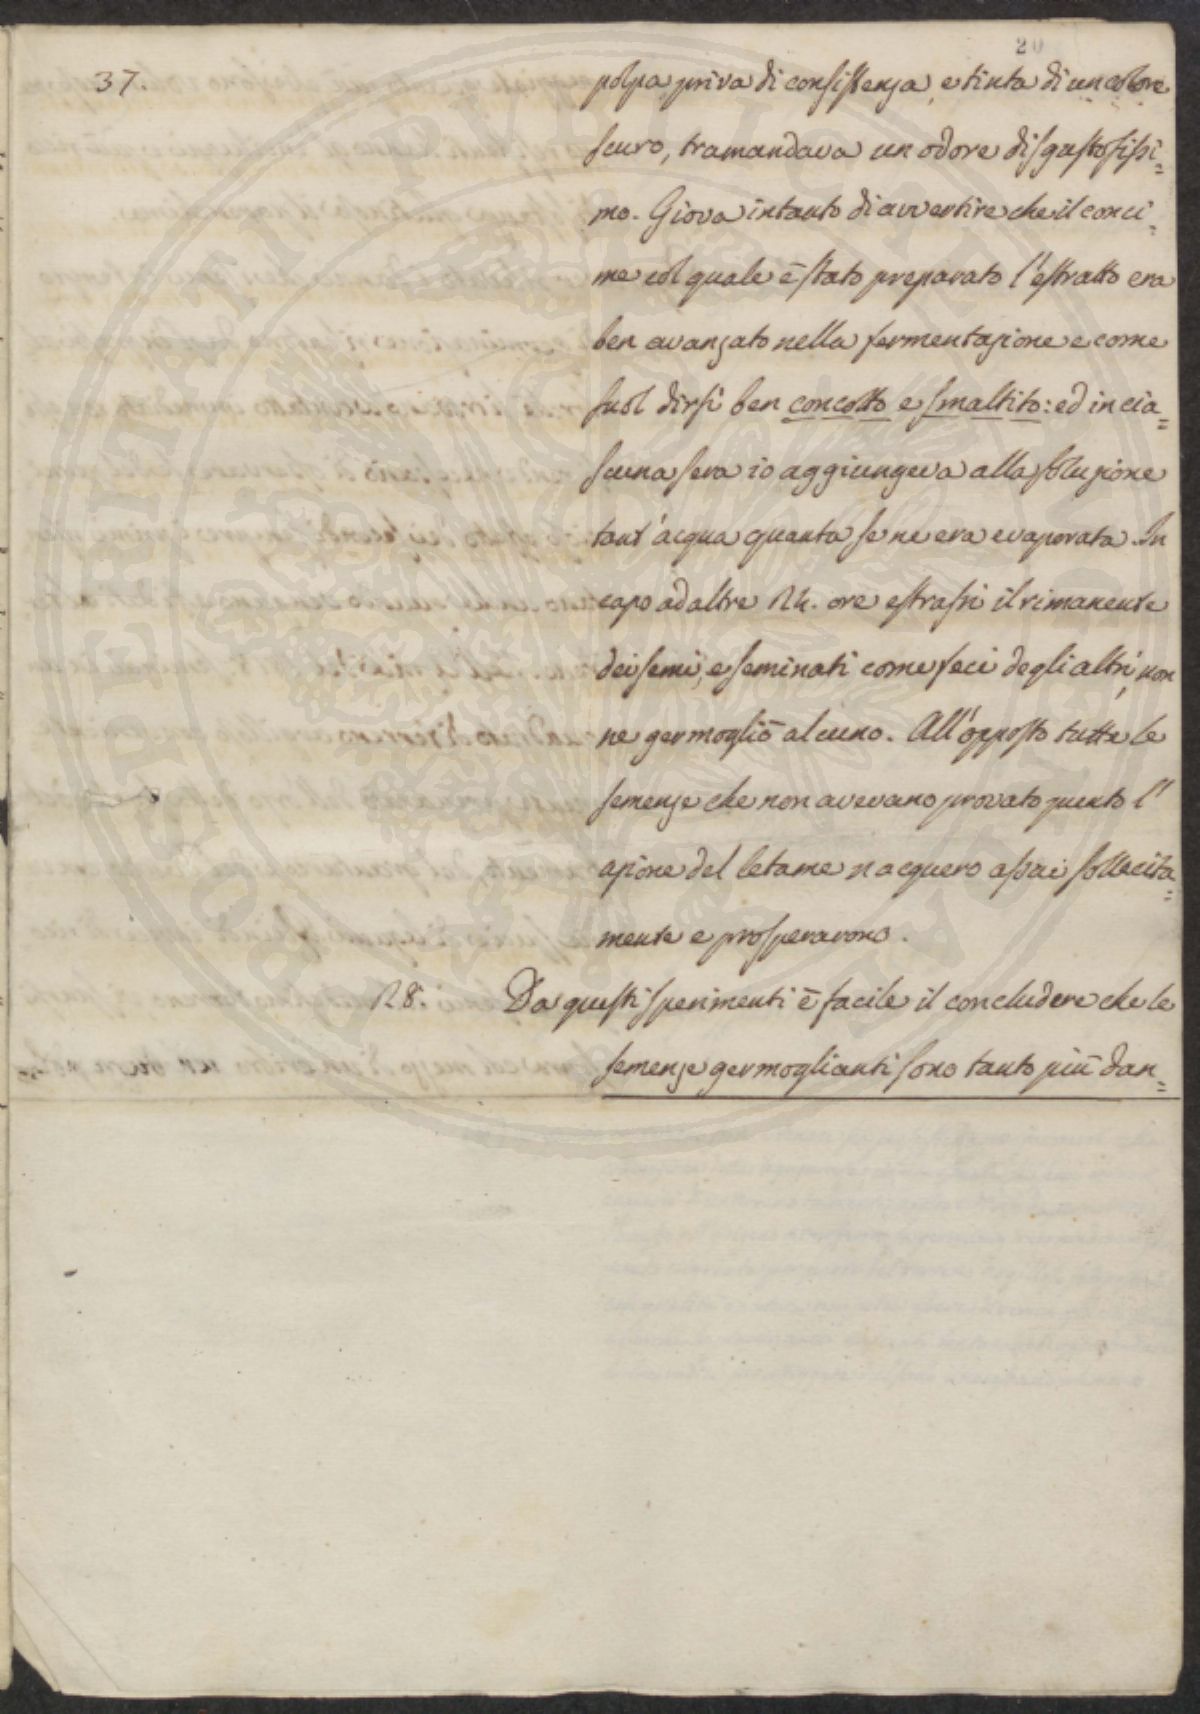 20
37.
polpa priva di consistenza, e tinta di un colore
scuro, tramandava un odore disgustosissi=
mo. Giova intanto di avvertire che il conci=
me col quale è stato preparato l'estratto era
ben avanzato nella fermentazione e come
suol dirsi ben concotto e smaltito: ed in cia=
scuna sera io aggiungeva alla soluzione
tant'acqua quanta se ne era evaporata. In
capo ad altre 24. ore estrassi il rimanente
dei semi, e seminati come feci degli altri, non
ne germogliò alcuno. All'opposto tutte le
semenze che non avevano provato punto l'
azione del letame nacquero assai sollecita=
mente e prosperarono.
28. Da questi sperimenti è facile il concludere che le
semenze germoglianti sono tanto più dan=